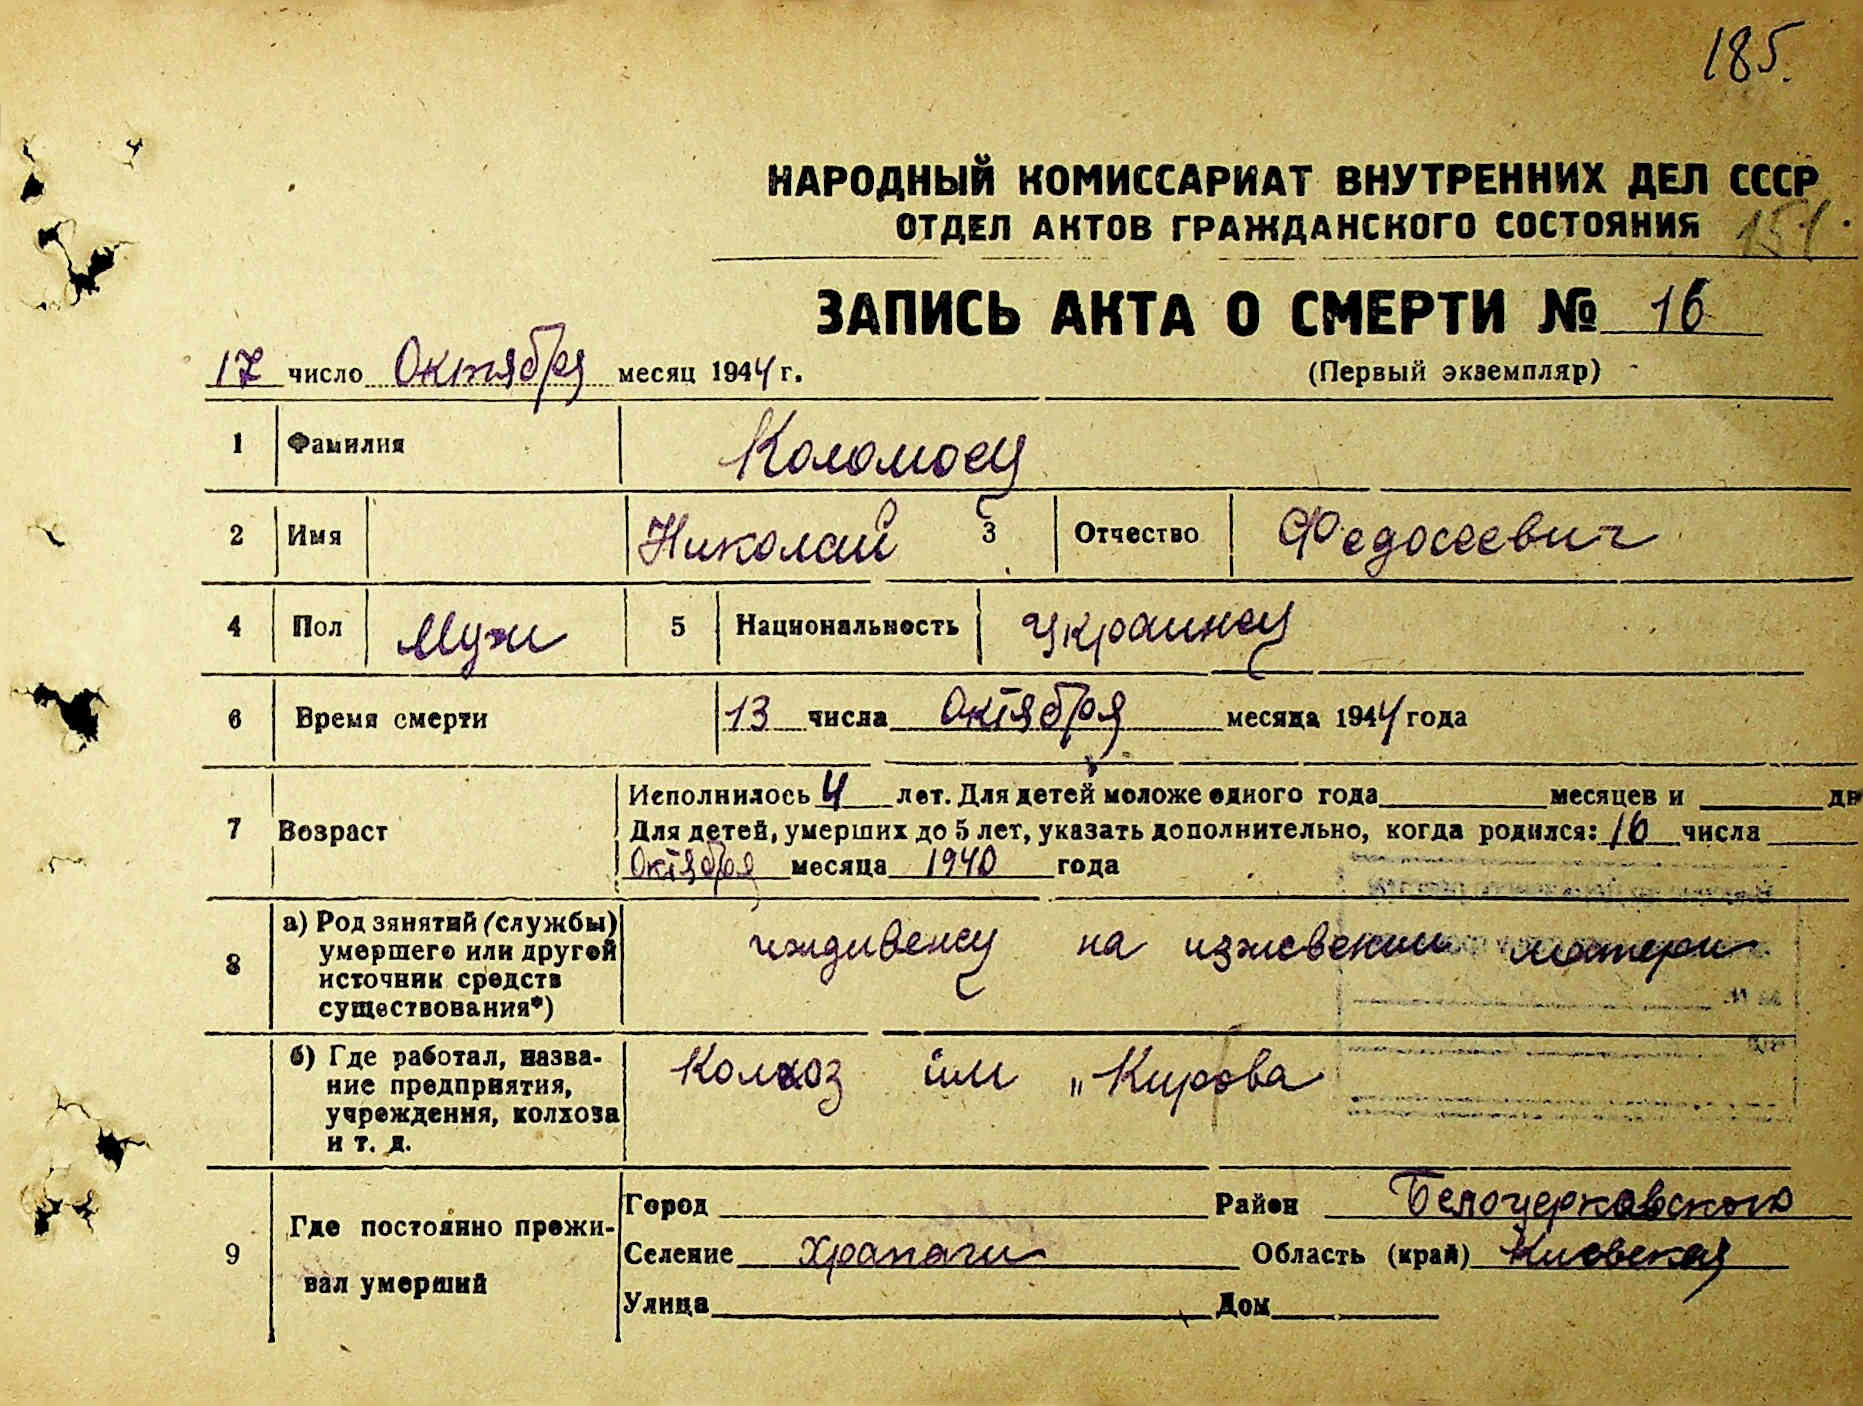 185.
НАРОДНЫЙ КОМИССАРИАТ ВНУТРЕННИХ ДЕЛ СССР
ОТДЕЛ АКТОВ ГРАЖДАНСКОГО СОСТОЯНИЯ 151.
ЗАПИСЬ АКТА О СМЕРТИ № 16
17 число Октября месяц 1944 г. (Первый экземпляр)
1 Фамилия Коломоец
2 Имя Николай 3 Отчество Федосеевич
4 Пол Муж 5 Национальность Украинец
6 Время смерти 13 числа Октября месяца 1944 года
7 Возраст Исполнилось 4 лет. Для детей моложе одного года месяцев и дн
Для детей, умерших до 5 лет, указать дополнительно, когда родился: 16 числа
Октября месяца 1940 года
8 а) Род занятий (службы) умершего или другой источник средств существования*) иждивенец на матери
б) Где работал, название предприятия, учреждения, колхоза и т. д. Колхоз им „Кирова
9 Где постоянно проживал умерший
Город Район Белоцерковского
Селение Храпачи Область (край) Киевская
Улица Дом